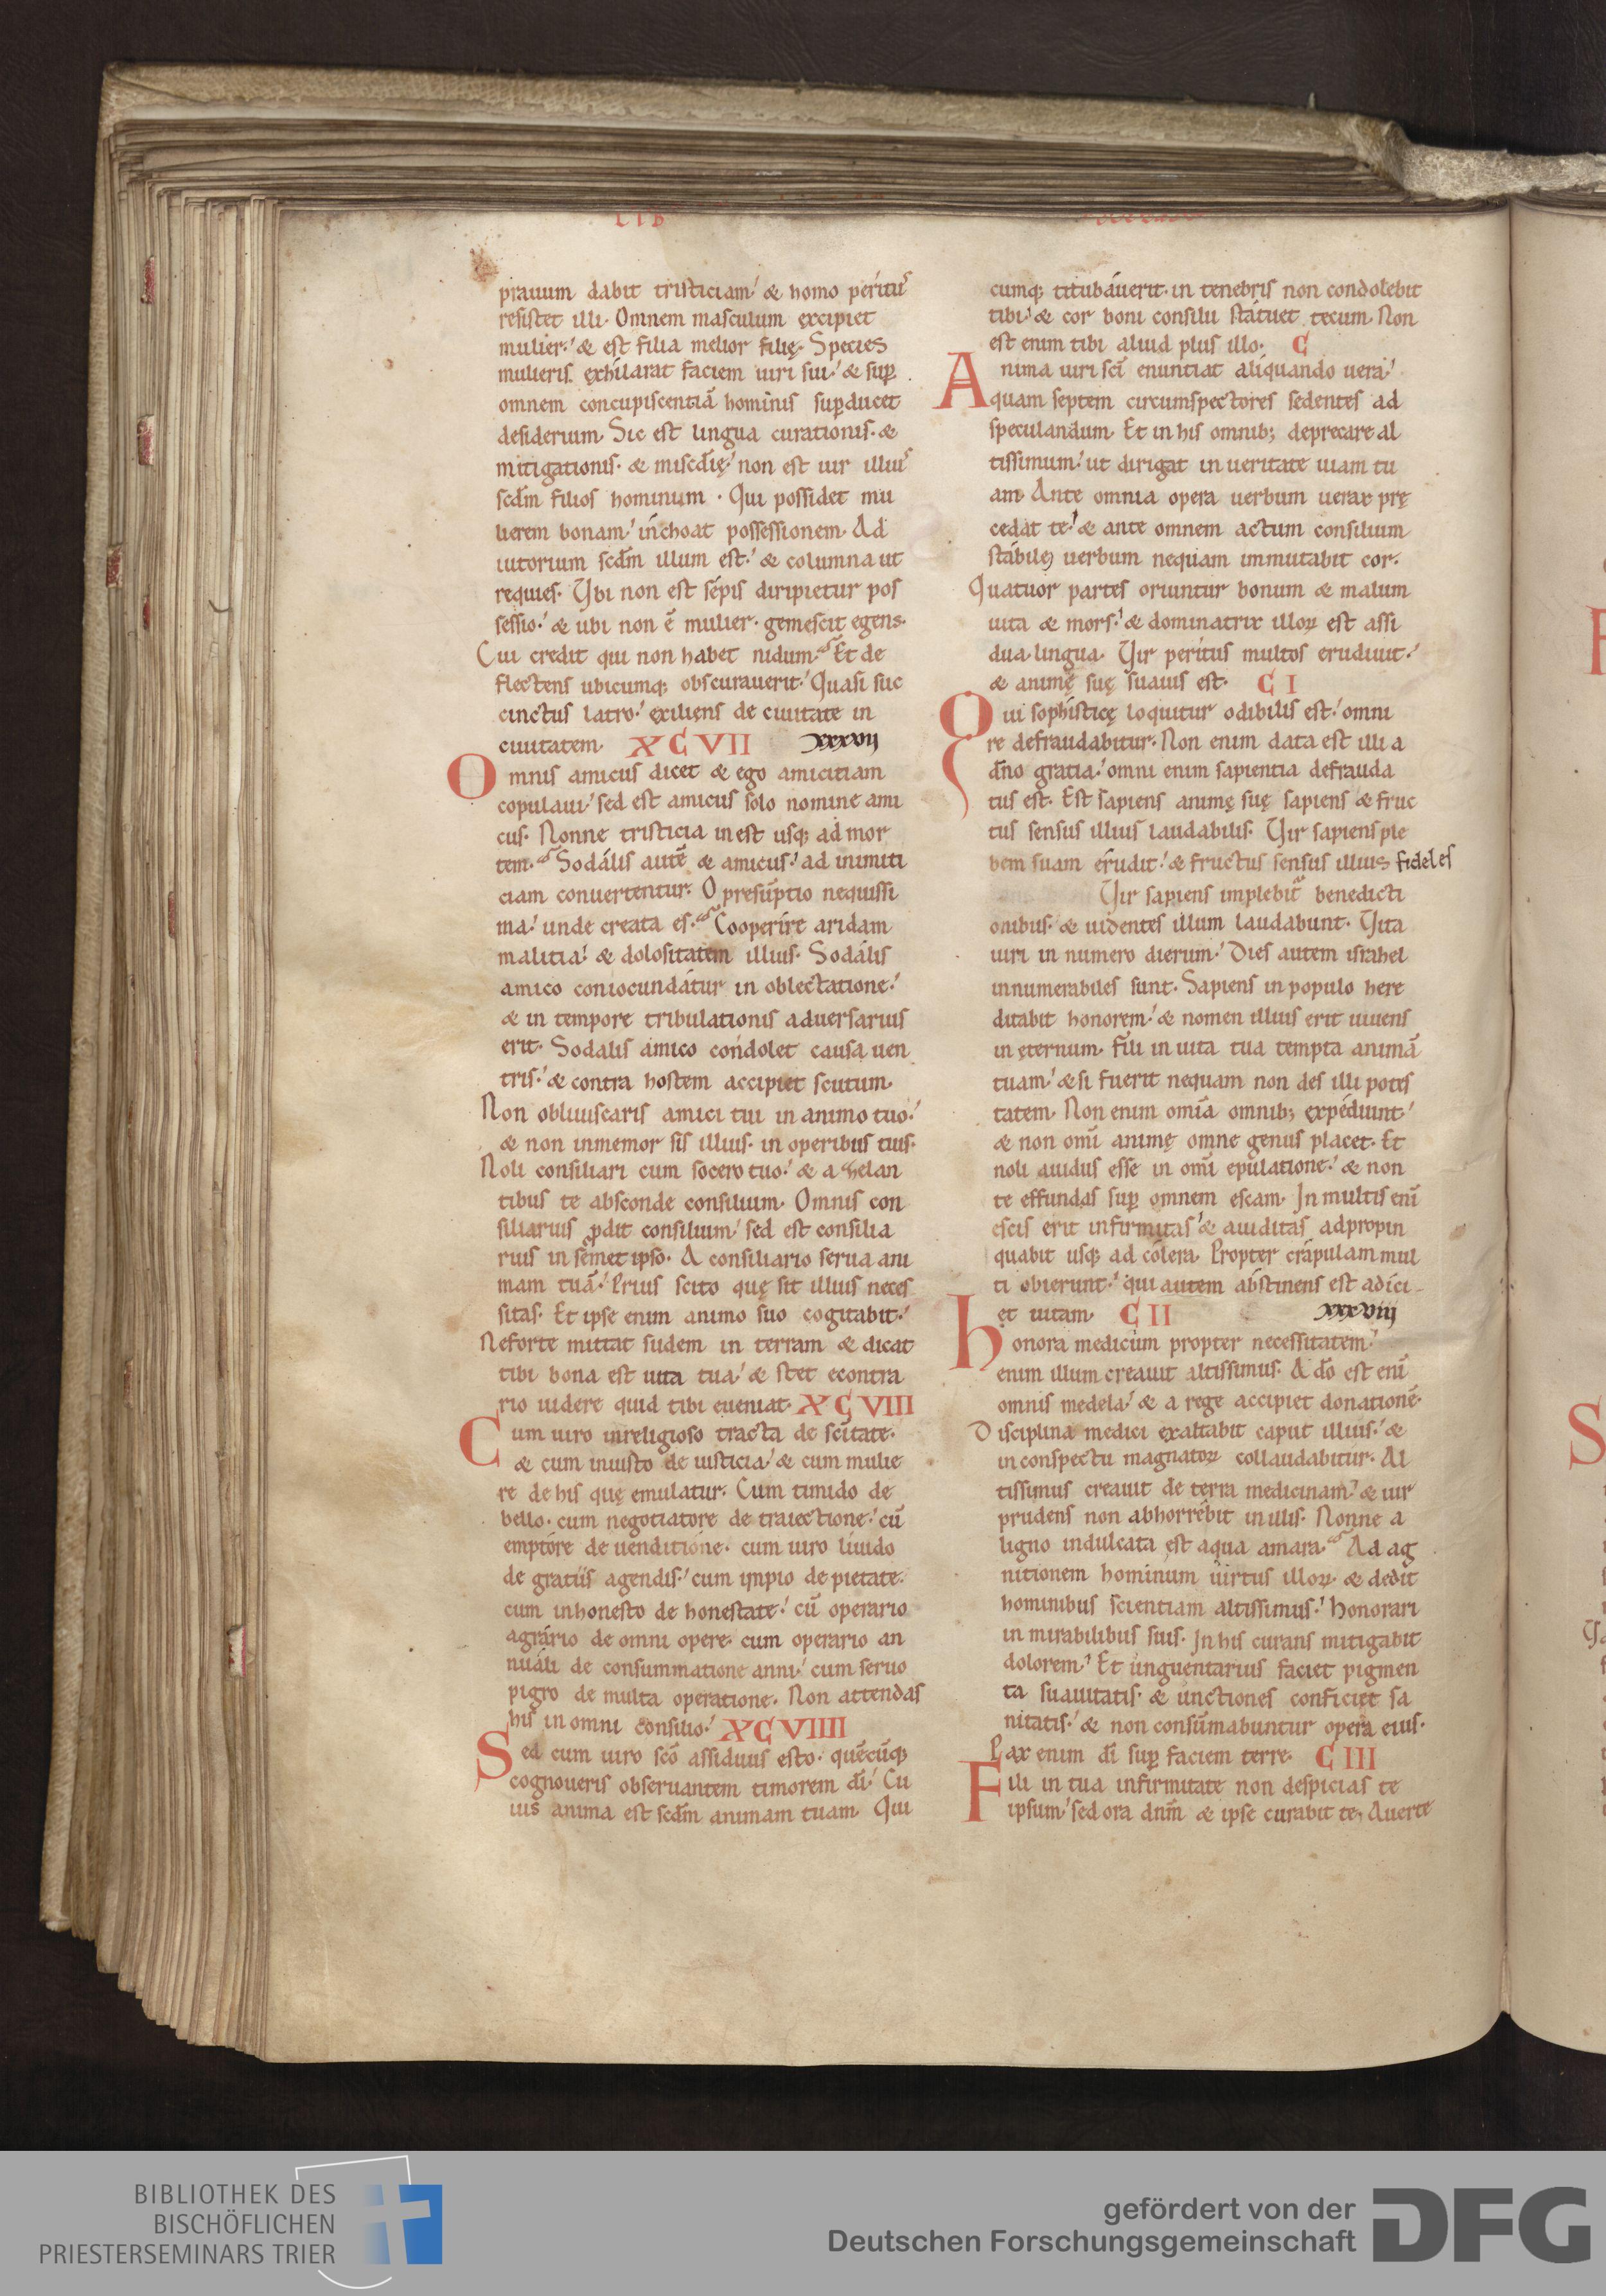 LIB
prauum dabit tristiciam' & homo peritus
resistet illi. Omnem masculum excipiet
mulier.' & est filia melior filię. Species
mulieris exhilarat faciem uiri sui.' & sup
omnem concupiscentiā hominis supducet
desiderium. Sic est lingua curationis. &
mitigationis. & miscdię.' non est uir illius
scdm filios hominum. Qui possidet mu
lierem bonam.' inchoat possessionem. Ad
iutorium scdm illum est.' & columna ut
requies. Vbi non est sepis diripietur pos
sessio.' & ubi non ē mulier. gemescit egens.
Cui credit qui non habet nidum. Et de
flectens ubicumq; obscurauerit.' Quasi suc
cinctus latro.' exiliens de ciuitate in
ciuitatem. XCVII xxxvij
Omnis amicus dicet & ego amicitiam
copulaui.' sed est amicus solo nomine ami
cus. Nonne tristicia inest usq; ad mor
tem. Sodalis autē & amicus.' ad inimiti
ciam conuertentur. O presūptio nequissi
ma.' unde creata es. Cooperire aridam
malitia.' & dolositatem illius. Sodalis
amico coniocundatur in oblectatione.'
& in tempore tribulationis aduersarius
erit. Sodalis amico condolet causa uen
tris.' & contra hostem accipiet scutum.
Non obliuiscaris amici tui in animo tuo.'
& non inmemor sis illius. in operibus tuis.
Noli consiliari cum socero tuo.' & a zelan
tibus te absconde consilium. Omnis con
siliarius pdit consilium.' sed est consilia
rius in semet ipso. A consiliario serua ani
mam tuā.' Prius scito quę sit illius neces
sitas. Et ipse enim animo suo cogitabit.'
Neforte mittat sudem in terram & dicat
tibi bona est uita tua.' & stet econtra
rio uidere quid tibi eueniat. XCVIII
Cum uiro inreligioso tracta de scitate.
& cum iniusto de iusticia.' & cum mulie
re de his quę emulatur. Cum timido de
bello. cum negotiatore de traiectione.' cū
emptore de uenditione. cum uiro liuido
de gratiis agendis.' cum impio de pietate.
cum inhonesto de honestate.' cū operario
agrario de omni opere. cum operario an
nuali de consummatione anni.' cum seruo
pigro de multa operatione. Non attendas
his in omni consilio.' XCVIIII
Sed cum uiro scō assiduus esto. quēcūq;
cognoueris obseruantem timorem dī.' Cu
ius anima est scdm animam tuam. Qui
cumq; titubauerit. in tenebris non condolebit
tibi.' & cor boni consilii statuet tecum. Non
est enim tibi aliud plus illo. C
Anima uiri sci enuntiat aliquando uera.'
quam septem circumspectores sedentes ad
speculandum. Et in his omnib; deprecare al
tissimum.' ut dirigat in ueritate uiam tu
am. Ante omnia opera uerbum uerax prę
cedat te.' & ante omnem actum consilium
stabile; uerbum nequam immutabit cor.
Quatuor partes oriuntur bonum & malum
uita & mors.' & dominatrix illoꝝ est assi
dua lingua. Vir peritus multos erudiuit.'
& animę suę suauis est. CI
Qui sophisticę loquitur odibilis est.' omni
re defraudabitur. Non enim data est illi a
dno gratia.' omni enim sapientia defrauda
tus est. Est sapiens animę suę sapiens & fruc
tus sensus illius laudabilis. Vir sapiens ple
bem suam erudit.' & fructus sensus illius fideles
Vir sapiens implebit benedicti
onibus. & uidentes illum laudabunt. Vita
uiri in numero dierum.' Dies autem israhel
innumerabiles sunt. Sapiens in populo here
ditabit honorem.' & nomen illius erit uiuens
in ęternum. Fili in uita tua tempta animā
tuam.' & si fuerit nequam non des illi potes
tatem. Non enim omīa omnib; expediunt.'
& non omī animę omne genus placet. Et
noli auidus esse in omī epulatione.' & non
te effundas sup omnem escam. In multis enī
escis erit infirmitas.' & auiditas adpropin
quabit usq; ad colera. Propter crapulam mul
ti obierunt.' qui autem abstinens est adici
et uitam. CII xxxviij
honora medicum propter necessitatem.'
enim illum creauit altissimus. A dō est enī
omnis medela.' & a rege accipiet donationē.
Disciplina medici exaltabit caput illius.' &
in conspectu magnatoꝝ collaudabitur. Al
tissimus creauit de terra medicinam.' & uir
prudens non abhorrebit in illis. Nonne a
ligno indulcata est aqua amara. Ad ag
nitionem hominum uirtus illoꝝ. & dedit
hominibus scientiam altissimus.' honorari
in mirabilibus suis. In his curans mitigabit
dolorem.' Et unguentarius faciet pigmen
ta suauitatis. & unctiones conficiet sa
nitatis.' & non consūmabuntur opera eius.
Pax enim dī sup faciem terre. CIII
Fili in tua infirmitate non despicias te
ipsum.' sed ora dnm & ipse curabit te; Auerte
BIBLIOTHEK DES
BISCHÖFLICHEN
PRIESTERSEMINARS TRIER
gefördert von der
Deutschen Forschungsgemeinschaft
DFG